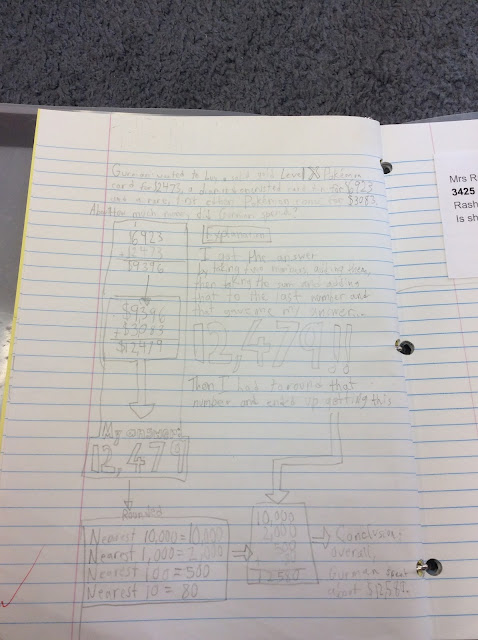 wanted to buy a solid gold Level X Pokémon
card for $2473, a card for $6923
and a rare, first edition Pokémon for $3083.
About how much money did spend?
6923
+ 2473
$9396
Explanation
I got the answer
by taking two adding them,
then taking the sum and adding
that to the last number and
that gave me my answer...
12,479!!
$9396
+ $3083
$12479
Then I had to round that
number and ended up getting this
My answer:
12,479
Rounded
Nearest 10,000 = 10,000
Nearest 1,000 = 2,000
Nearest 100 = 500
Nearest 10 = 80
10,000
2,000
500
12580
Conclusion:
overall,
about
Mrs R
3425
Rash
Is sh